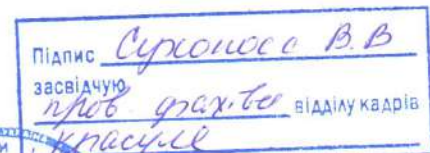 Підпис Сухонос В.В
засвідчую
пров. фахівець відділу кадрів
Красуля